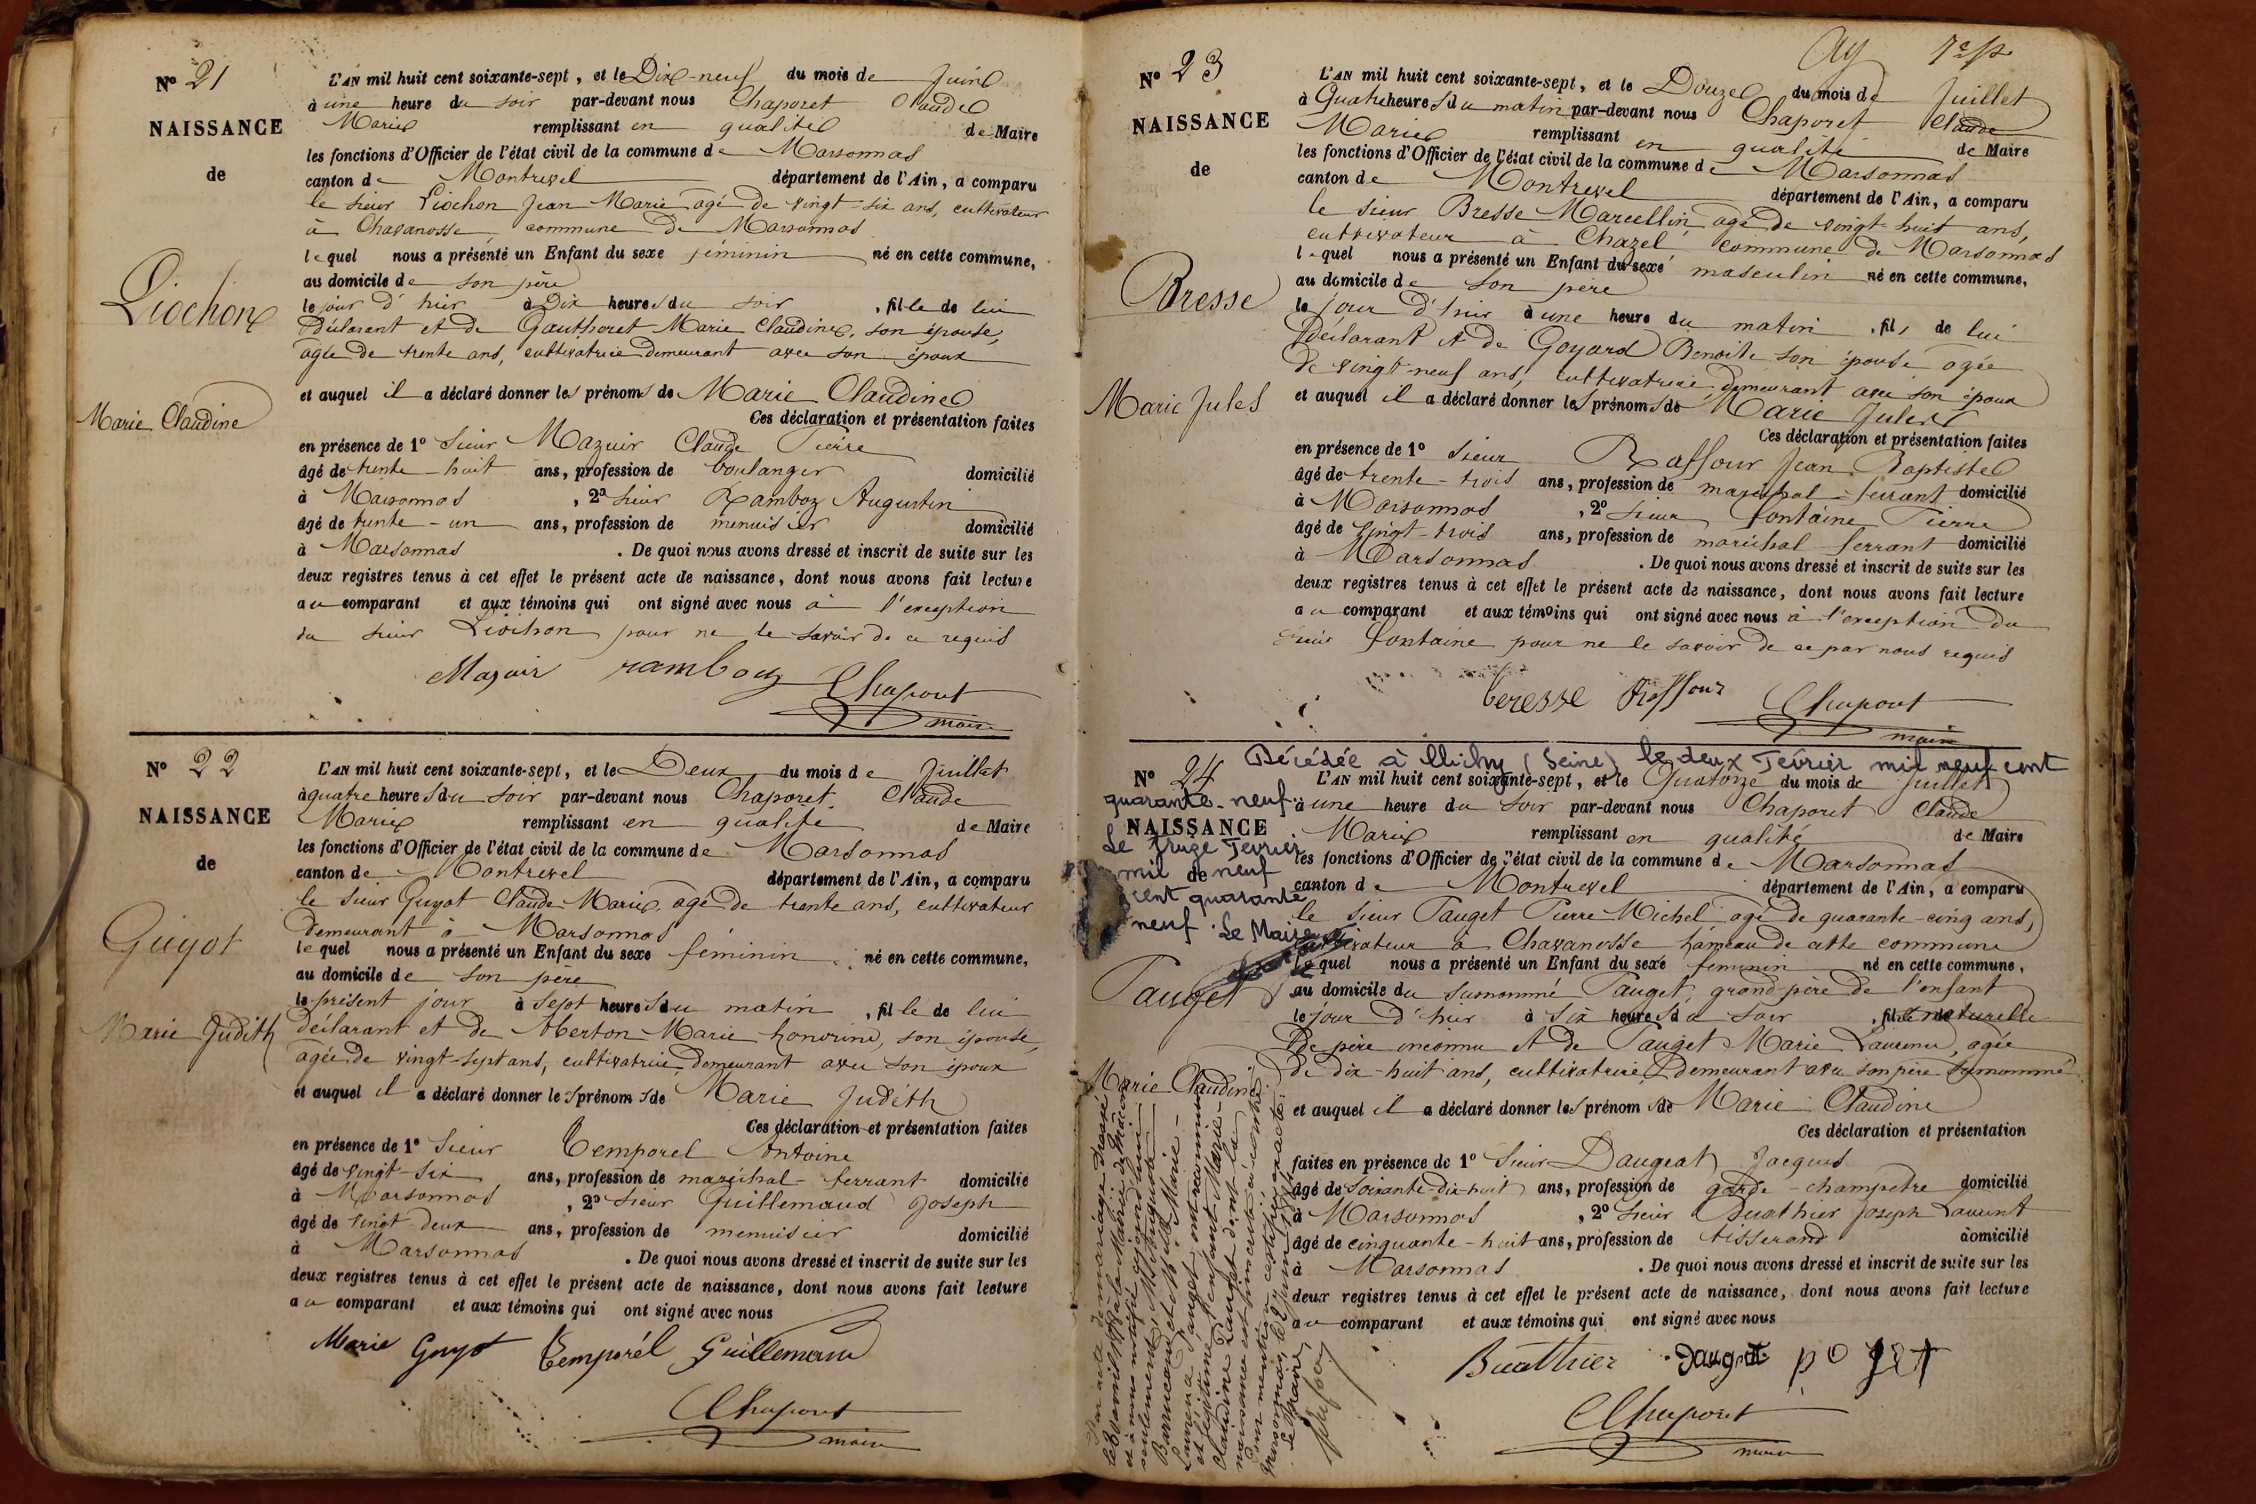 N° 21
NAISSANCE
de
Liochon
Marie Claudine
L'AN mil huit cent soixante-sept, et le Dix-neuf du mois de Juin
à une heure du soir par-devant nous Chaporet Claude
Marie remplissant en qualité de Maire
les fonctions d'Officier de l'état civil de la commune de Marsonnas
canton de Montrevel département de l'Ain, a comparu
le sieur Liochon Jean Marie agé de vingt-six ans, cultivateur
à Chavanosse commune de Marsonnas
lequel nous a présenté un Enfant du sexe féminin né en cette commune,
au domicile de son père
le jour d'hier à Dix heures du soir, fille de lui
Déclarant et de Gauthoret Marie Claudine, son épouse,
agée de trente ans, cultivatrice demeurant avec son époux
et auquel il a déclaré donner les prénoms de Marie Claudine
Ces déclaration et présentation faites
en présence de 1° Sieur Mazuir Claude Pierre
âgé de trente-huit ans, profession de boulanger domicilié
à Marsonnas, 2° sieur Ramboz Augustin
âgé de trente-un ans, profession de menuisier domicilié
à Marsonnas. De quoi nous avons dressé et inscrit de suite sur les
deux registres tenus à cet effet le présent acte de naissance, dont nous avons fait lecture
au comparant et aux témoins qui ont signé avec nous à l'exception
du sieur Liochon pour ne le savoir de ce requis
Mazuir ramboz Chaporet
maire
N° 22
NAISSANCE
de
Guyot
Marie Judith
L'AN mil huit cent soixante-sept, et le Deux du mois de Juillet
à quatre heures du soir par-devant nous Chaporet Claude
Marie remplissant en qualité de Maire
les fonctions d'Officier de l'état civil de la commune de Marsonnas
canton de Montrevel département de l'Ain, a comparu
le sieur Guyot Claude Marie, agé de trente ans, cultivateur
demeurant à Marsonnas
lequel nous a présenté un Enfant du sexe féminin né en cette commune,
au domicile de son père
le présent jour à sept heures du matin, fille de lui
déclarant et de Marie honorine, son épouse,
agée de vingt-sept ans, cultivatrice, demeurant avec son époux
et auquel il a déclaré donner les prénoms de Marie Judith
Ces déclaration et présentation faites
en présence de 1° Sieur Temporel Antoine
âgé de vingt-six ans, profession de maréchal-ferrant domicilié
à Marsonnas, 2° sieur Guillemaud Joseph
âgé de vingt-deux ans, profession de menuisier domicilié
à Marsonnas. De quoi nous avons dressé et inscrit de suite sur les
deux registres tenus à cet effet le présent acte de naissance, dont nous avons fait lecture
au comparant et aux témoins qui ont signé avec nous
Marie Guyot Temporél Guillemaud
Chaporet
maire
N° 23
NAISSANCE
de
Bresse
Marie Jules
L'AN mil huit cent soixante-sept, et le Douze du mois de Juillet
à Quatre heures du matin par-devant nous Chaporet Claude
Marie remplissant en qualité de Maire
les fonctions d'Officier de l'état civil de la commune de Marsonnas
canton de Montrevel département de l'Ain, a comparu
le sieur Bresse Marcellin agé de vingt-huit ans,
cultivateur à Chazel commune de Marsonnas
lequel nous a présenté un Enfant du sexe masculin né en cette commune,
au domicile de son père
le jour d'hier à une heure du matin, fils de lui
Déclarant et de Goyard Benoite son épouse agée
de vingt-neuf ans, cultivatrice demeurant avec son époux
et auquel il a déclaré donner les prénoms de Marie Jules
Ces déclaration et présentation faites
en présence de 1° Sieur Raffour Jean Baptiste
âgé de trente-trois ans, profession de maréchal-ferrant domicilié
à Marsonnas, 2° sieur fontaine Pierre
âgé de vingt-trois ans, profession de maréchal ferrant domicilié
à Marsonnas. De quoi nous avons dressé et inscrit de suite sur les
deux registres tenus à cet effet le présent acte de naissance, dont nous avons fait lecture
au comparant et aux témoins qui ont signé avec nous à l'exception du
sieur fontaine pour ne le savoir de ce par nous requis
beresse Raffour Chaporet
maire
Décédée à Clichy (Seine) le deux Février mil neuf cent
quarante-neuf.
Le Février
mil neuf
cent quarante
neuf. Le Maire
N° 24
NAISSANCE
de
Pauget
Marie Claudine
L'AN mil huit cent soixante-sept, et le Quatorze du mois de Juillet
à une heure du soir par-devant nous Chaporet Claude
Marie remplissant en qualité de Maire
les fonctions d'Officier de l'état civil de la commune de Marsonnas
canton de Montrevel département de l'Ain, a comparu
le sieur Pauget Pierre Michel agé de quarante-cinq ans,
cultivateur à Chavanosse hameau de cette commune
lequel nous a présenté un Enfant du sexe féminin né en cette commune,
au domicile du surnommé Pauget grand-père de l'enfant
le jour d'hier à six heures du soir, fille naturelle
De père inconnu et de Pauget Marie Laurence, agée
de dix-huit ans, cultivatrice, demeurant avec son père surnommé
et auquel il a déclaré donner les prénoms de Marie Claudine
Ces déclaration et présentation
faites en présence de 1° Sieur Daugeat Jacques
âgé de soixante-dix-huit ans, profession de garde-champêtre domicilié
à Marsonnas, 2° sieur Buathier Joseph Laurent
âgé de cinquante-huit ans, profession de tisserand domicilié
à Marsonnas. De quoi nous avons dressé et inscrit de suite sur les
deux registres tenus à cet effet le présent acte de naissance, dont nous avons fait lecture
au comparant et aux témoins qui ont signé avec nous
Buathier
Chaporet
maire
Par acte de mariage dressé
et à nous notifié aujourd'hui
seulement, M. Auguste
Laurence Pauget ont reconnu
et légitimé l'enfant Marie
Claudine Pauget dont la
naissance est
Pour mention certifiée exacte.
Marsonnas, le
Le Maire,